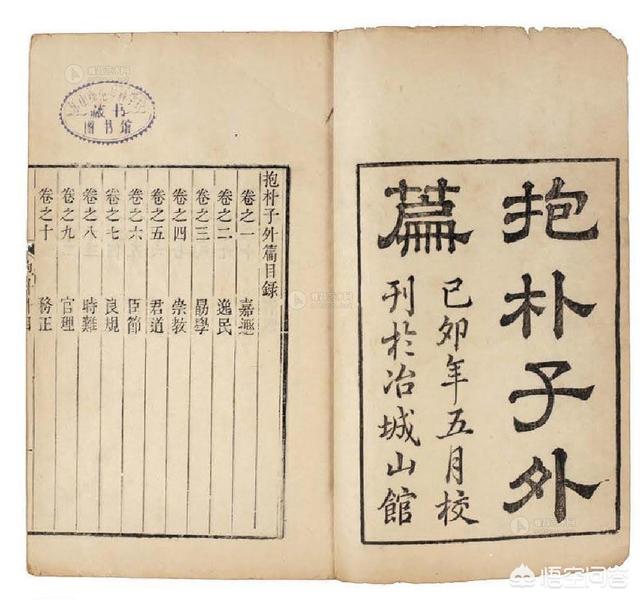 抱朴子外
篇
己卯年五月校
刊於冶城山館
抱朴子外篇目錄
卷之一 嘉遯
卷之二 逸民
卷之三 勗學
卷之四 崇教
卷之五 君道
卷之六 臣節
卷之七 良規
卷之八 時難
卷之九 官理
卷之十 務正
藏书
圖书館
悟空问答